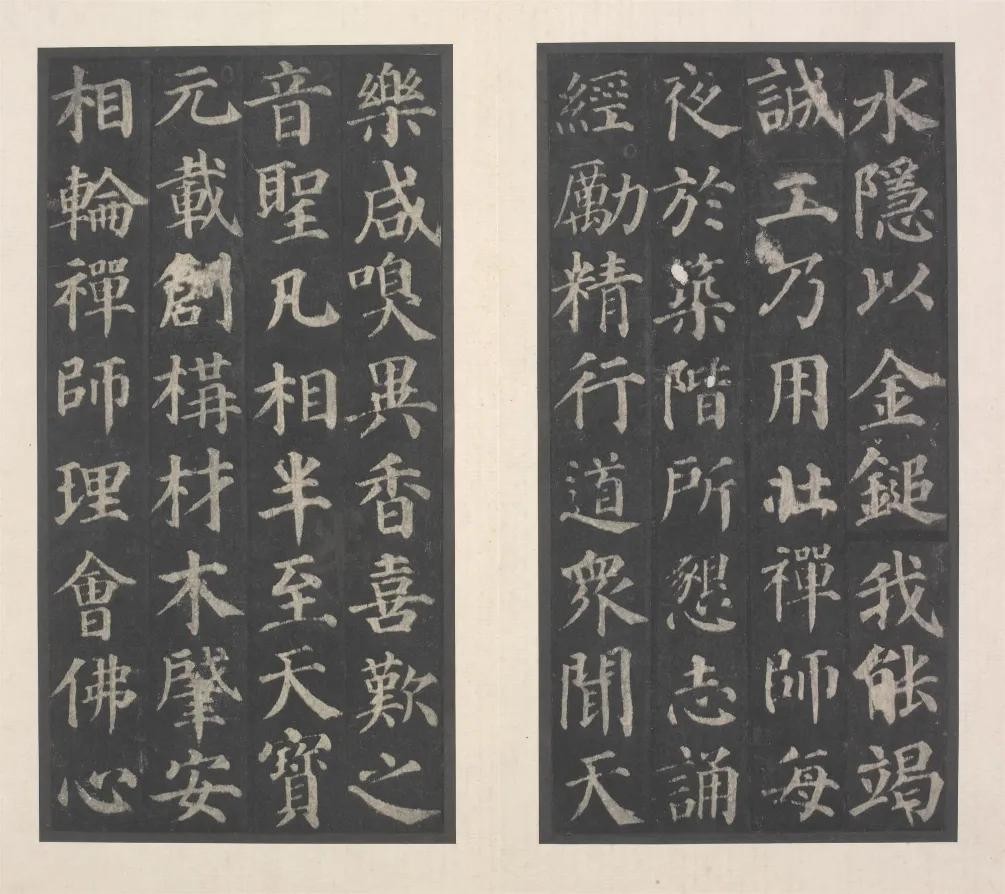 水隱以金鎚我能竭
誠工乃用壯禪師每
夜於築階所懇志誦
經勵精行道眾聞天
樂咸嗅異香喜歎之
音聖凡相半至天寶
元載創構材木肇安
相輪禪師理會佛心